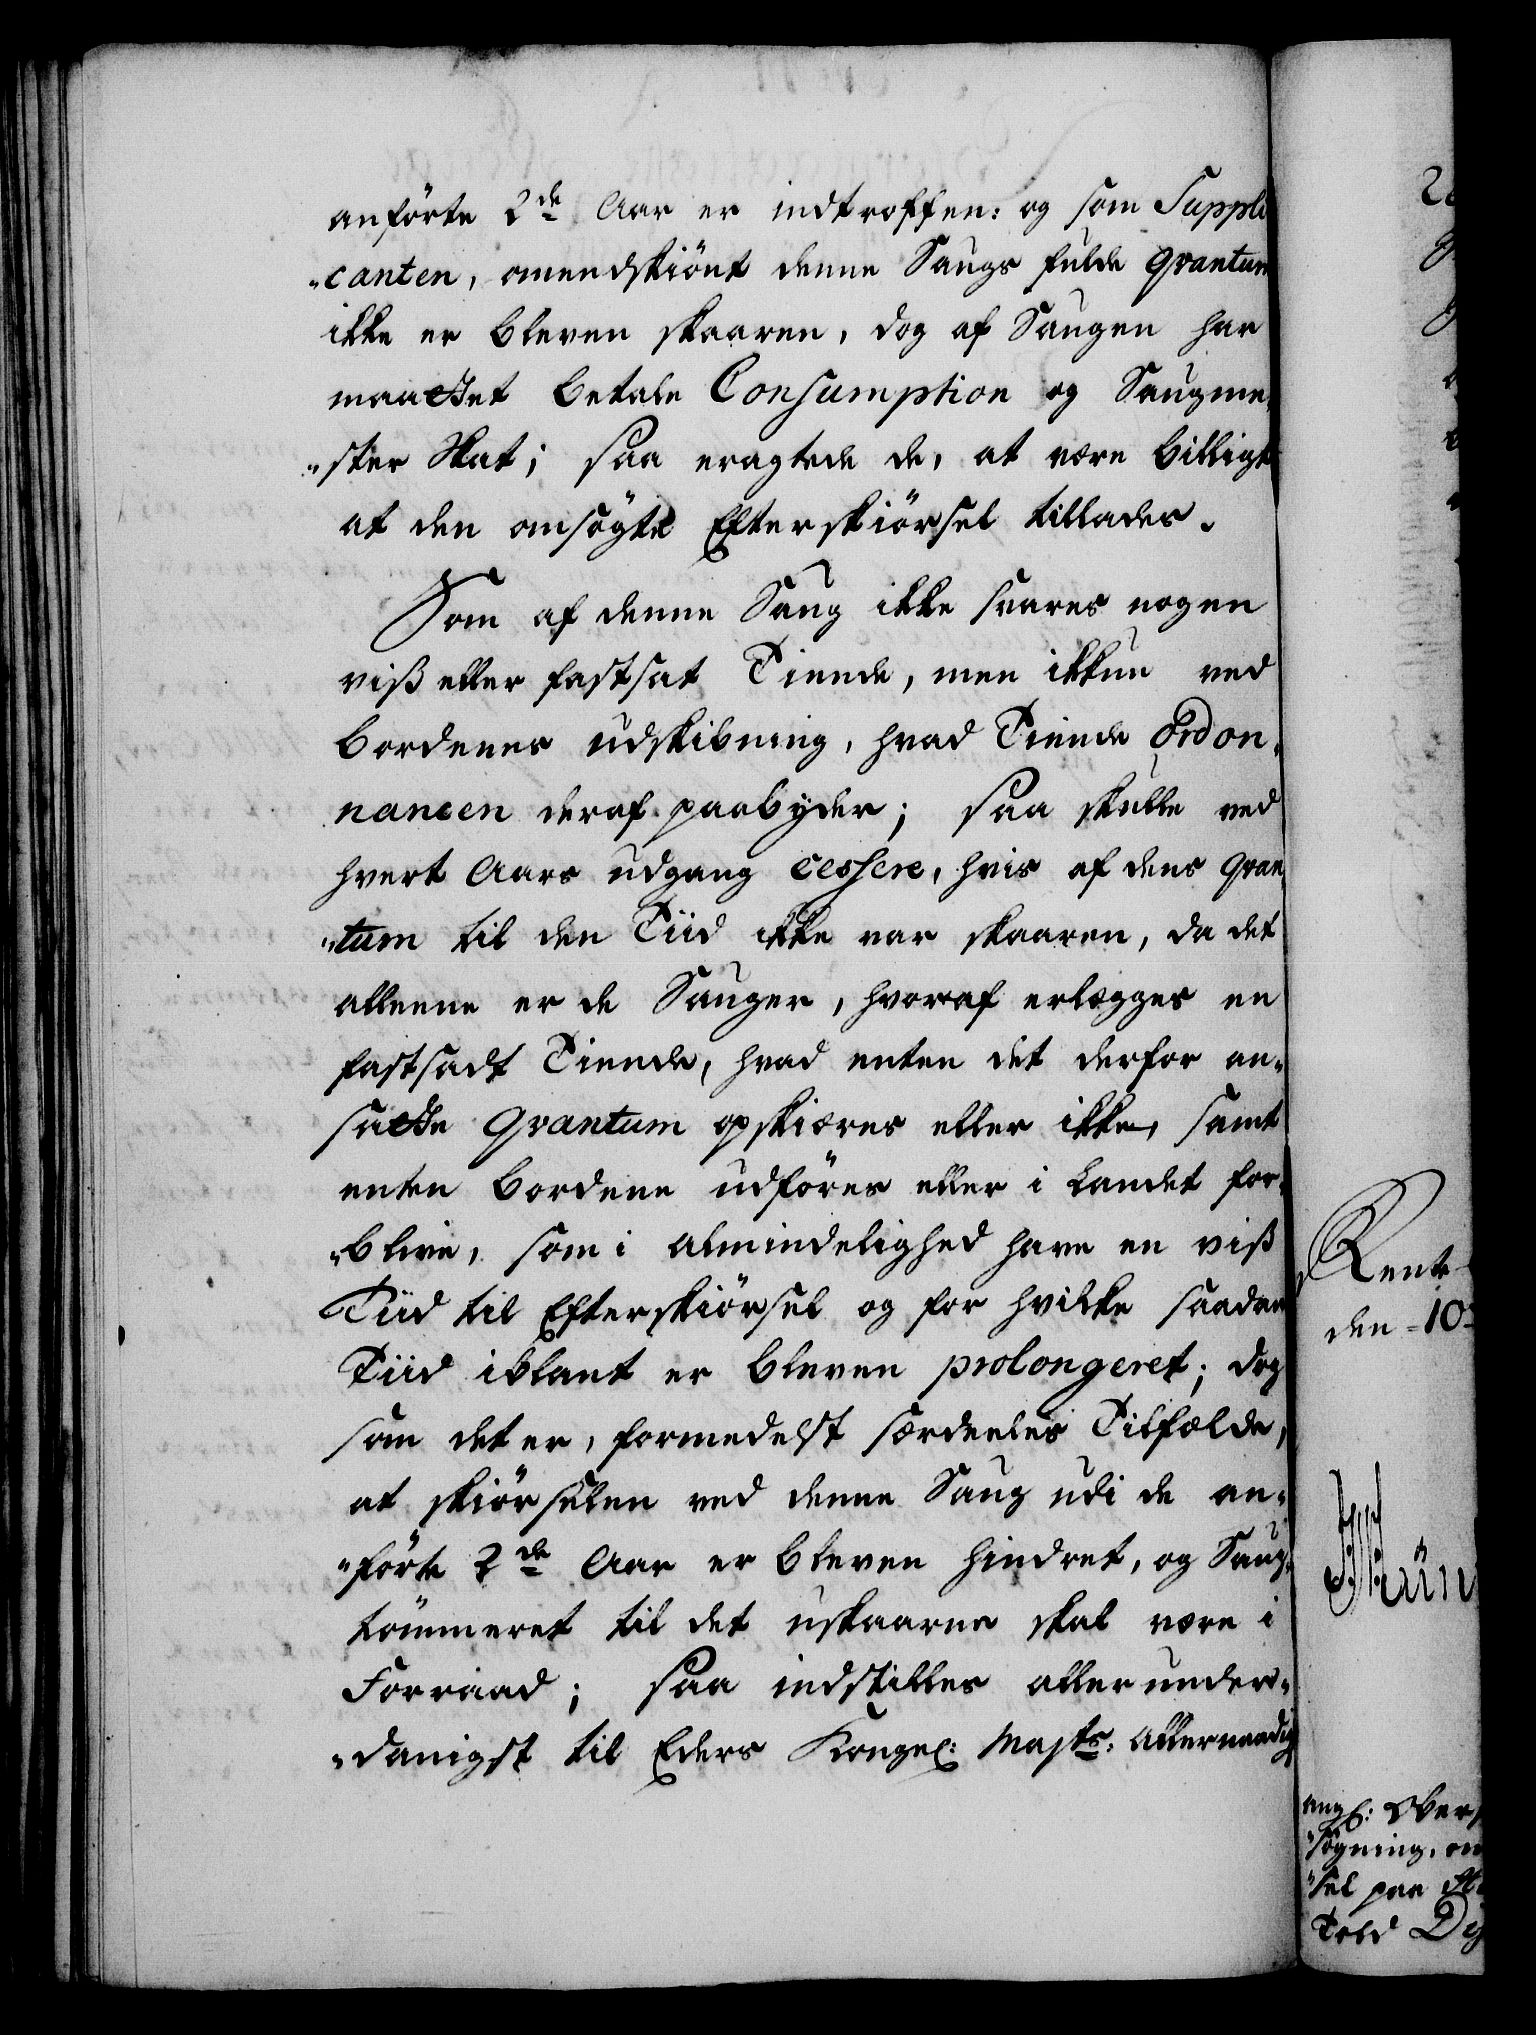 anförte 2de Aar er indtroffen: og som Suppli
"canten, omendskiönt denne Saugs fulde Qvantum
ikke er bleven skaaren, dog af Saugen har
maattet betale Consumption og Saugme„
"ster Skat; saa eragtede de, at være billigt
at den omsögte Efterskiörsel tillades.
Som af denne Saug ikke svares nogen
viss eller fastsat Tiende, men ikkun ved
bordenes udskibning, hvad Tiende Ordon„
nancen deraf paabyder; saa skulle ved
hvert Aars udgang cessere, hvis af dens Qvan
"tum til den Tiid ikke var skaaren, da det
alleene er de Sauger, hvoraf erlægges en
fastsadt Tiende, hvad enten det derfor an„
satte Qvantum opskiæres eller ikke, samt
enten bordene udföres eller i Landet for„
"blive, som i almindelighed have en viss
Tiid til Efterskiörsel og for hvilke saadan
Tiid iblant er bleven prolongeret; dog
som det er, formedelst særdeeles Tilfælde,
at skiörselen ved denne Saug udi de an„
"förte 2de Aar er bleven hindret, og Saug„
tömmeret til det uskaarne skal være i
Forraad; saa indstilles allerunder„
"danigst til Eders Kongel: Majts: allernaadig
Rente
den 10
ang: Over
"sögning, om
"sel paa
Told